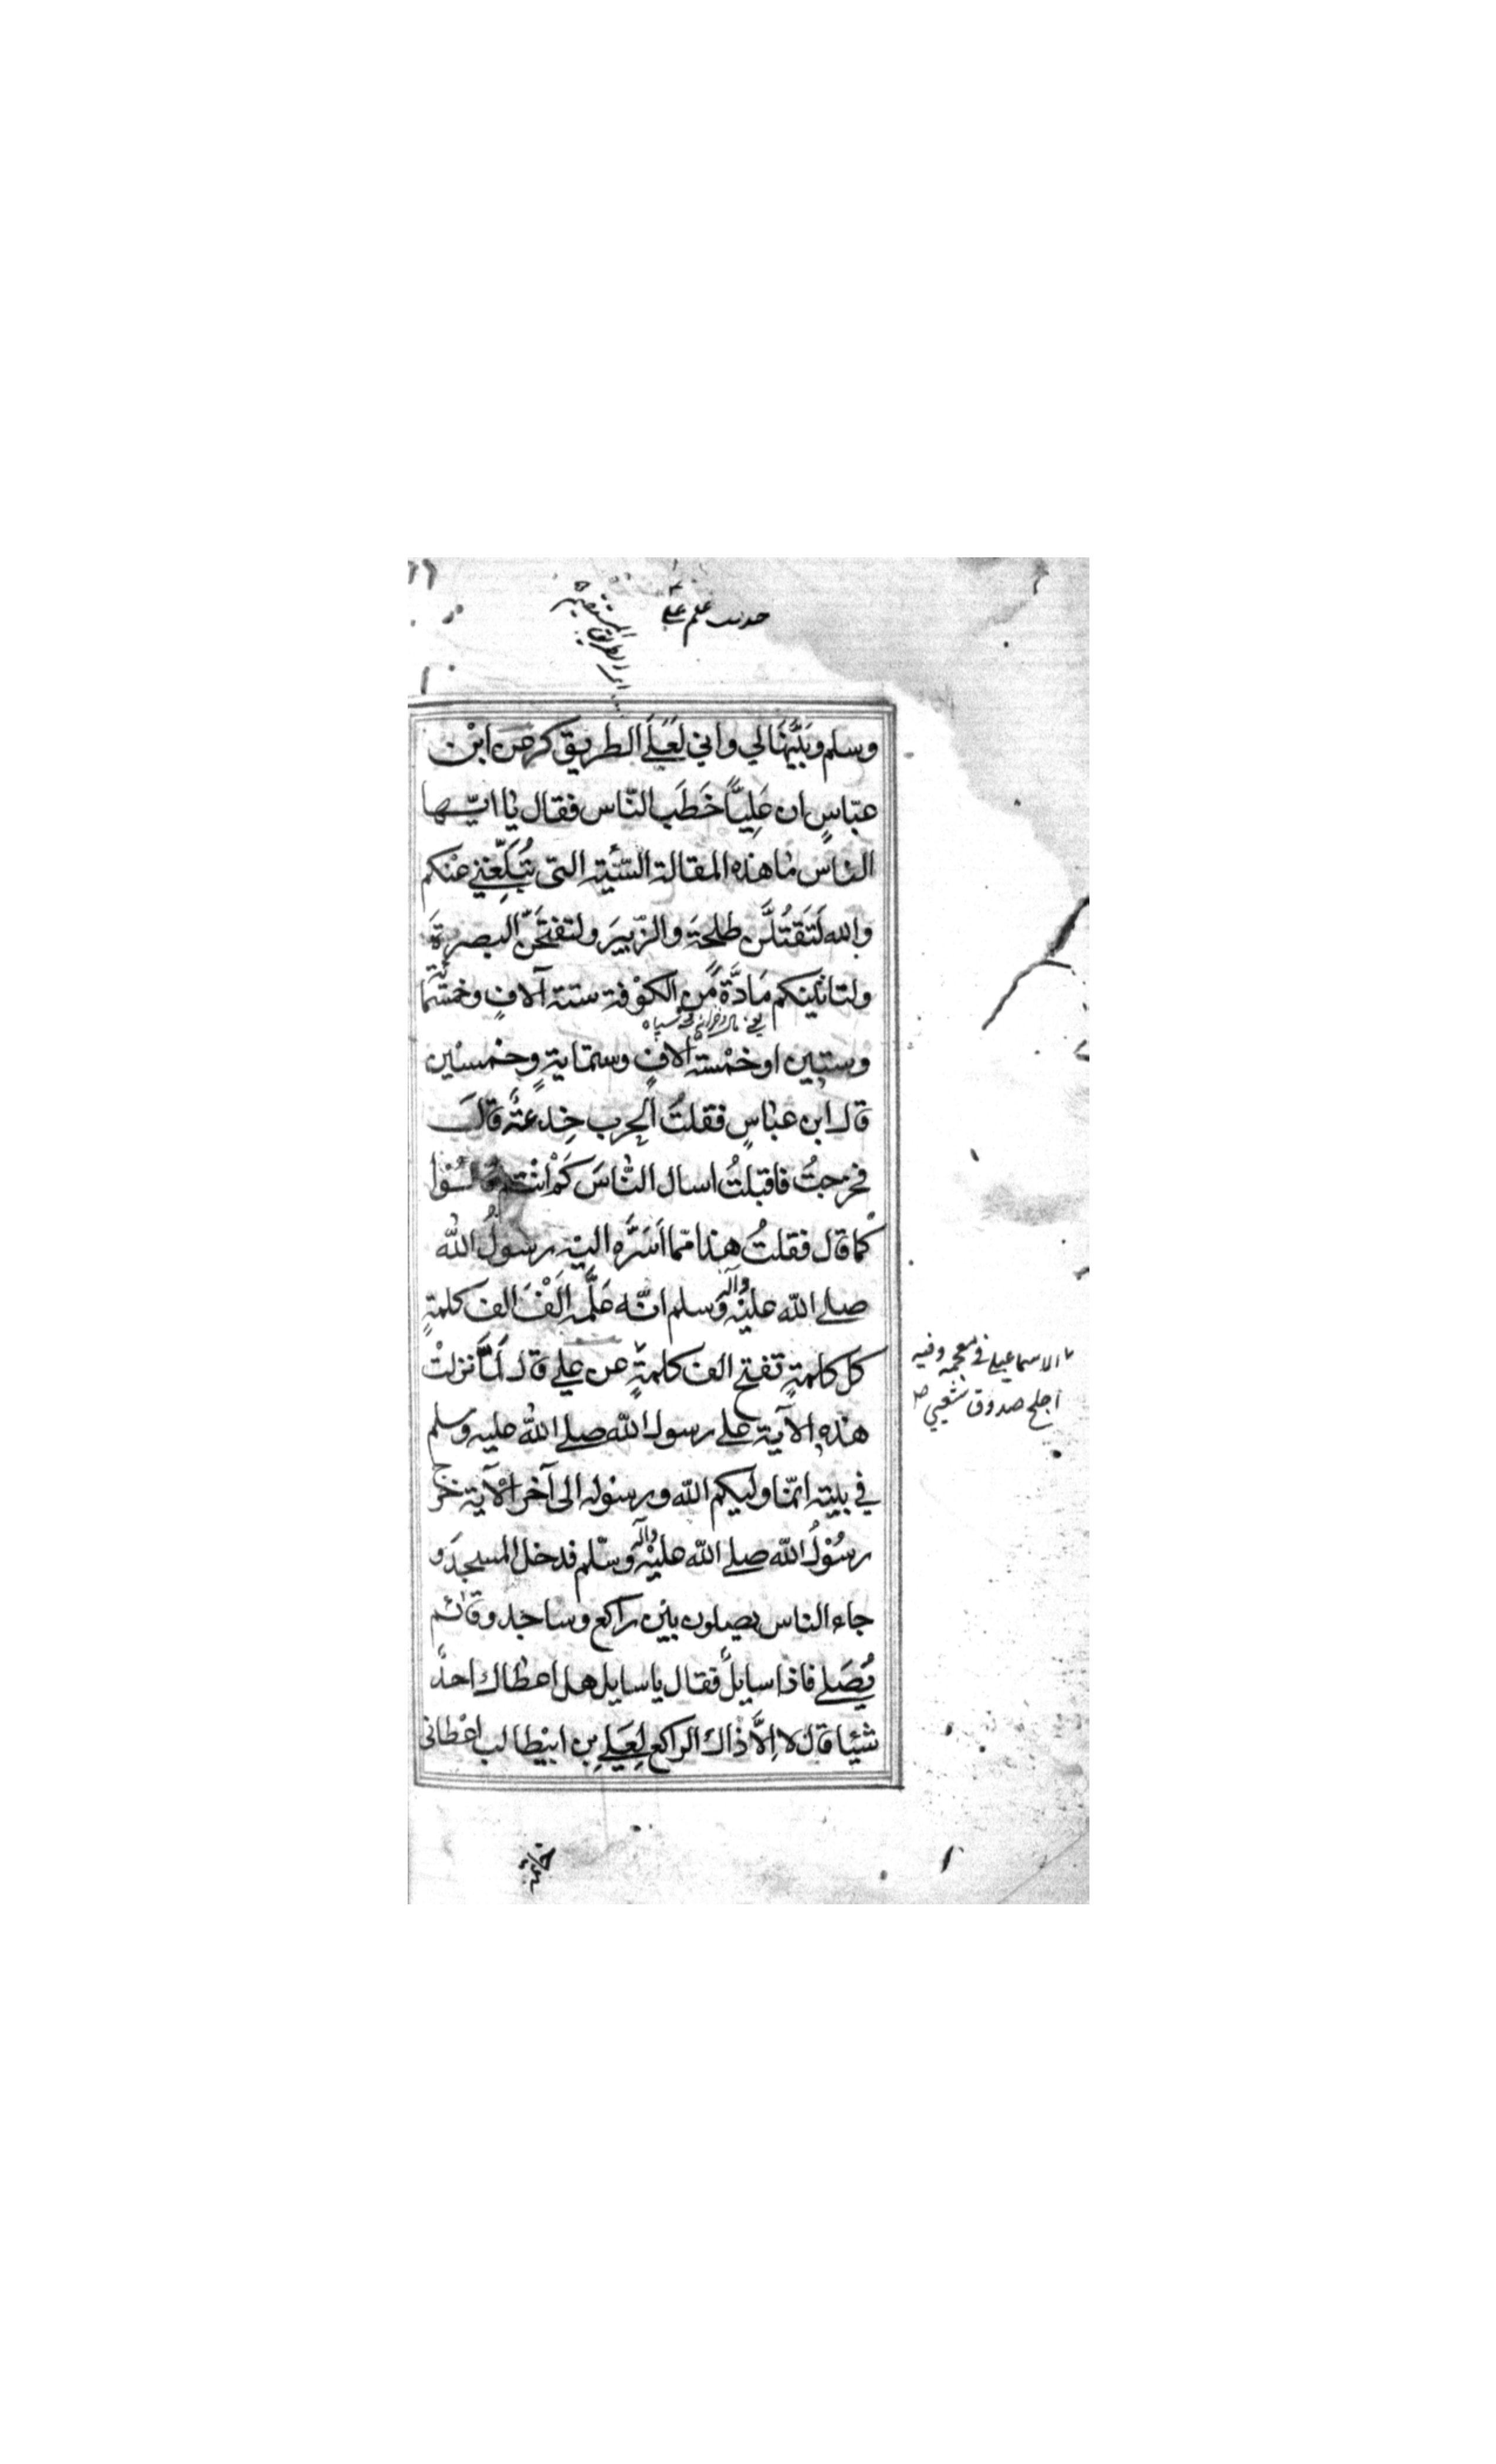 حديث علم علي
وسلم وبَيَّنَهَا لي واني لَعَلَى الطريق كر عن ابن
عبّاسٍ ان عَلِيًّا خَطَبَ النّاس فقال يا ايّها
الناس ما هذه المقالة السَّيئة التي تُبَلِّغني عنكم
والله لَتَقْتُلَنَّ طلحةَ والزّبيرَ ولتفتحَنّ البصرةَ
ولتاتينكم مَادَّةٌ مِّن الكوْفة ستة آلافٍ وخمسمائة
وستين او خمْسة الافٍ وستمايةٍ وخمسين
قال ابن عباسٍ فقلتُ الحرب خِدعَةٌ قالَ
فخرجتُ فاقبلتُ اسال النّاسَ كَمْ انْتم قالُوْا
كما قال فقلتُ هذا ممّا اَسَرَّه اليْه رسولُ الله
صلى الله عليْه وآله وسلم انّه عَلَّمَه اَلْفَ الف كلمةٍ
كل كلمةٍ تفتح الف كلمةٍ عن علي قال لمَّا نزلتْ
هذه الآية على رسول الله صلى الله عليه وسلم
في بيته انمّا وليكم الله ورسوله الى آخر الآية خرج
رسُوْلُ الله صلى الله عليْه وآله وسلم فدخل المسجدَ و
جاء الناس يصلون بين راكع وساجد وقائم
يُصَلي فاذا سايلٌ فقال يا سايل هل اعطاك احدٌ
شيئا قال لا اِلَّا ذاك الراكع لِعَلي بن ابيطالب اعْطاني
الاسماعيلي في معجمه وفيه
اجلح صدوق شيعي
خاتمه